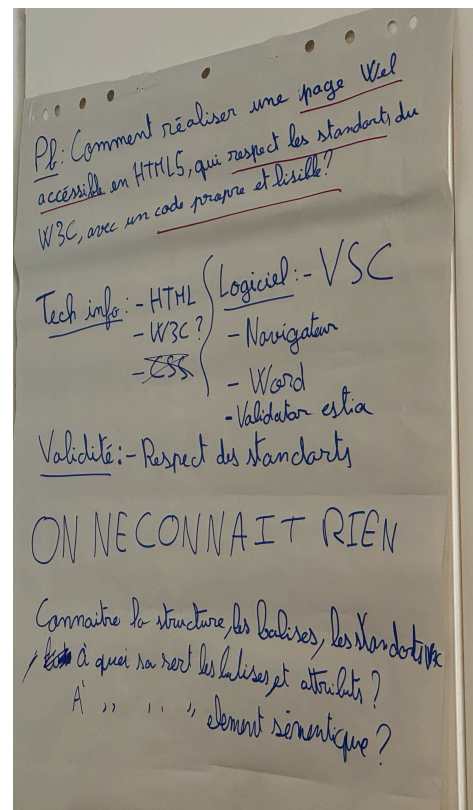 Pb: Comment réaliser une page Web
accéssible en HTML5, qui respect les standarts du
W3C, avec un code propre et lisible?
Tech info: - HTML
- W3C ?
- CSS
Logiciel: - VSC
- Navigateur
- Word
- Validator
Validité: - Respect des standarts
ON NE CONNAIT RIEN
Connaitre la structure, les balises, les standarts
à quoi sa sert les balises, et attributs ?
À " " " element sémentique ?